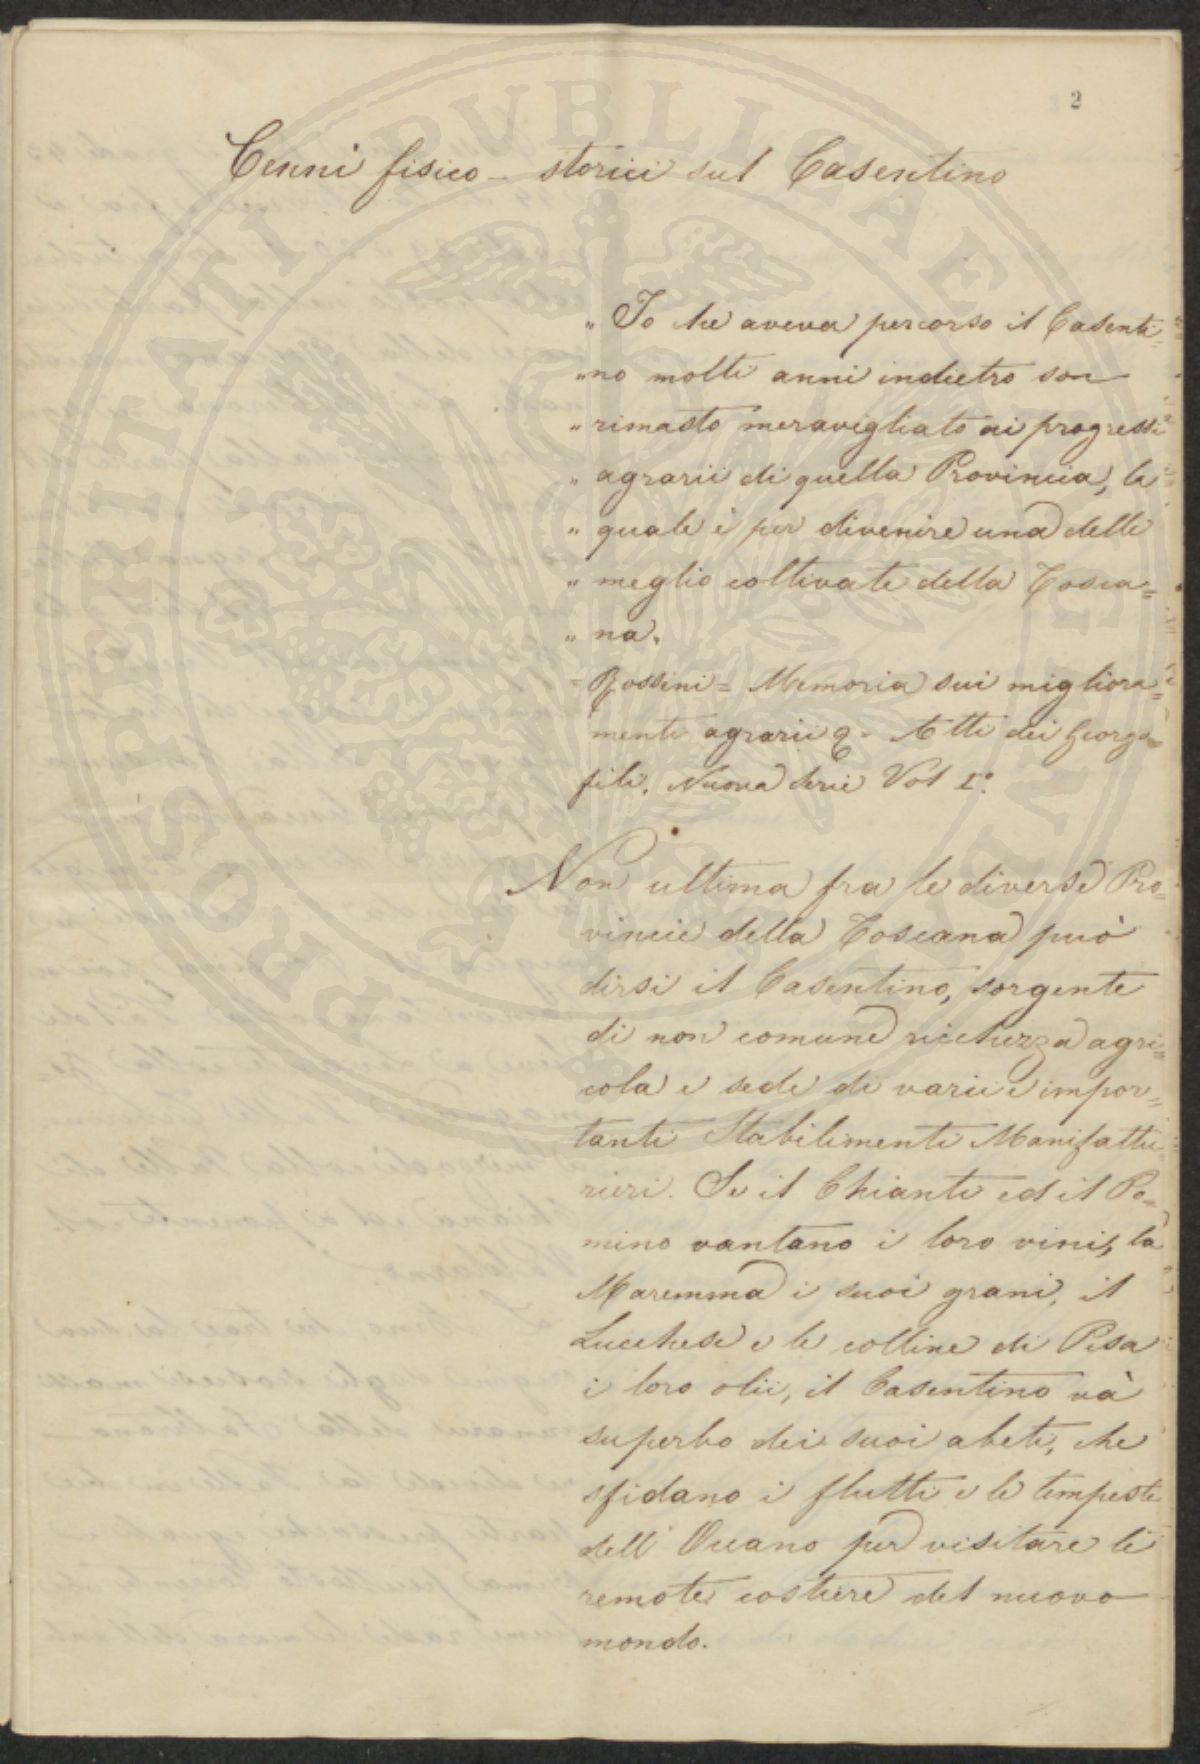 2
Cenni fisico - storici sul Casentino
„ Io che aveva percorso il Casenti=
„ no molti anni indietro son
„ rimasto meravigliato ai progressi
„ agrarii di quella Provincia, la
„ quale è per divenire una delle
„ meglio coltivate della Tosca=
„ na.
= Rossini = Memoria sui migliora=
menti agrarii Atti dei Georgo=
fili. Nuova Serie Vol I°.
Non ultima fra le diverse Pro=
vincie della Toscana può
dirsi il Casentino, sorgente
di non comune ricchezza agri=
cola e sede di varii e impor=
tanti Stabilimenti Manifattu
rieri. Se il Chianti ed il Po=
mino vantano i loro vini, la
Maremma i suoi grani, il
Lucchese e le colline di Pisa
i loro olii, il Casentino và
superbo dei suoi abeti, che
sfidano i flutti e le tempeste
dell' Oceano per visitare le
remote costiere del nuovo
mondo.
PROSPERITATI PVBLICAE AVGENDAE